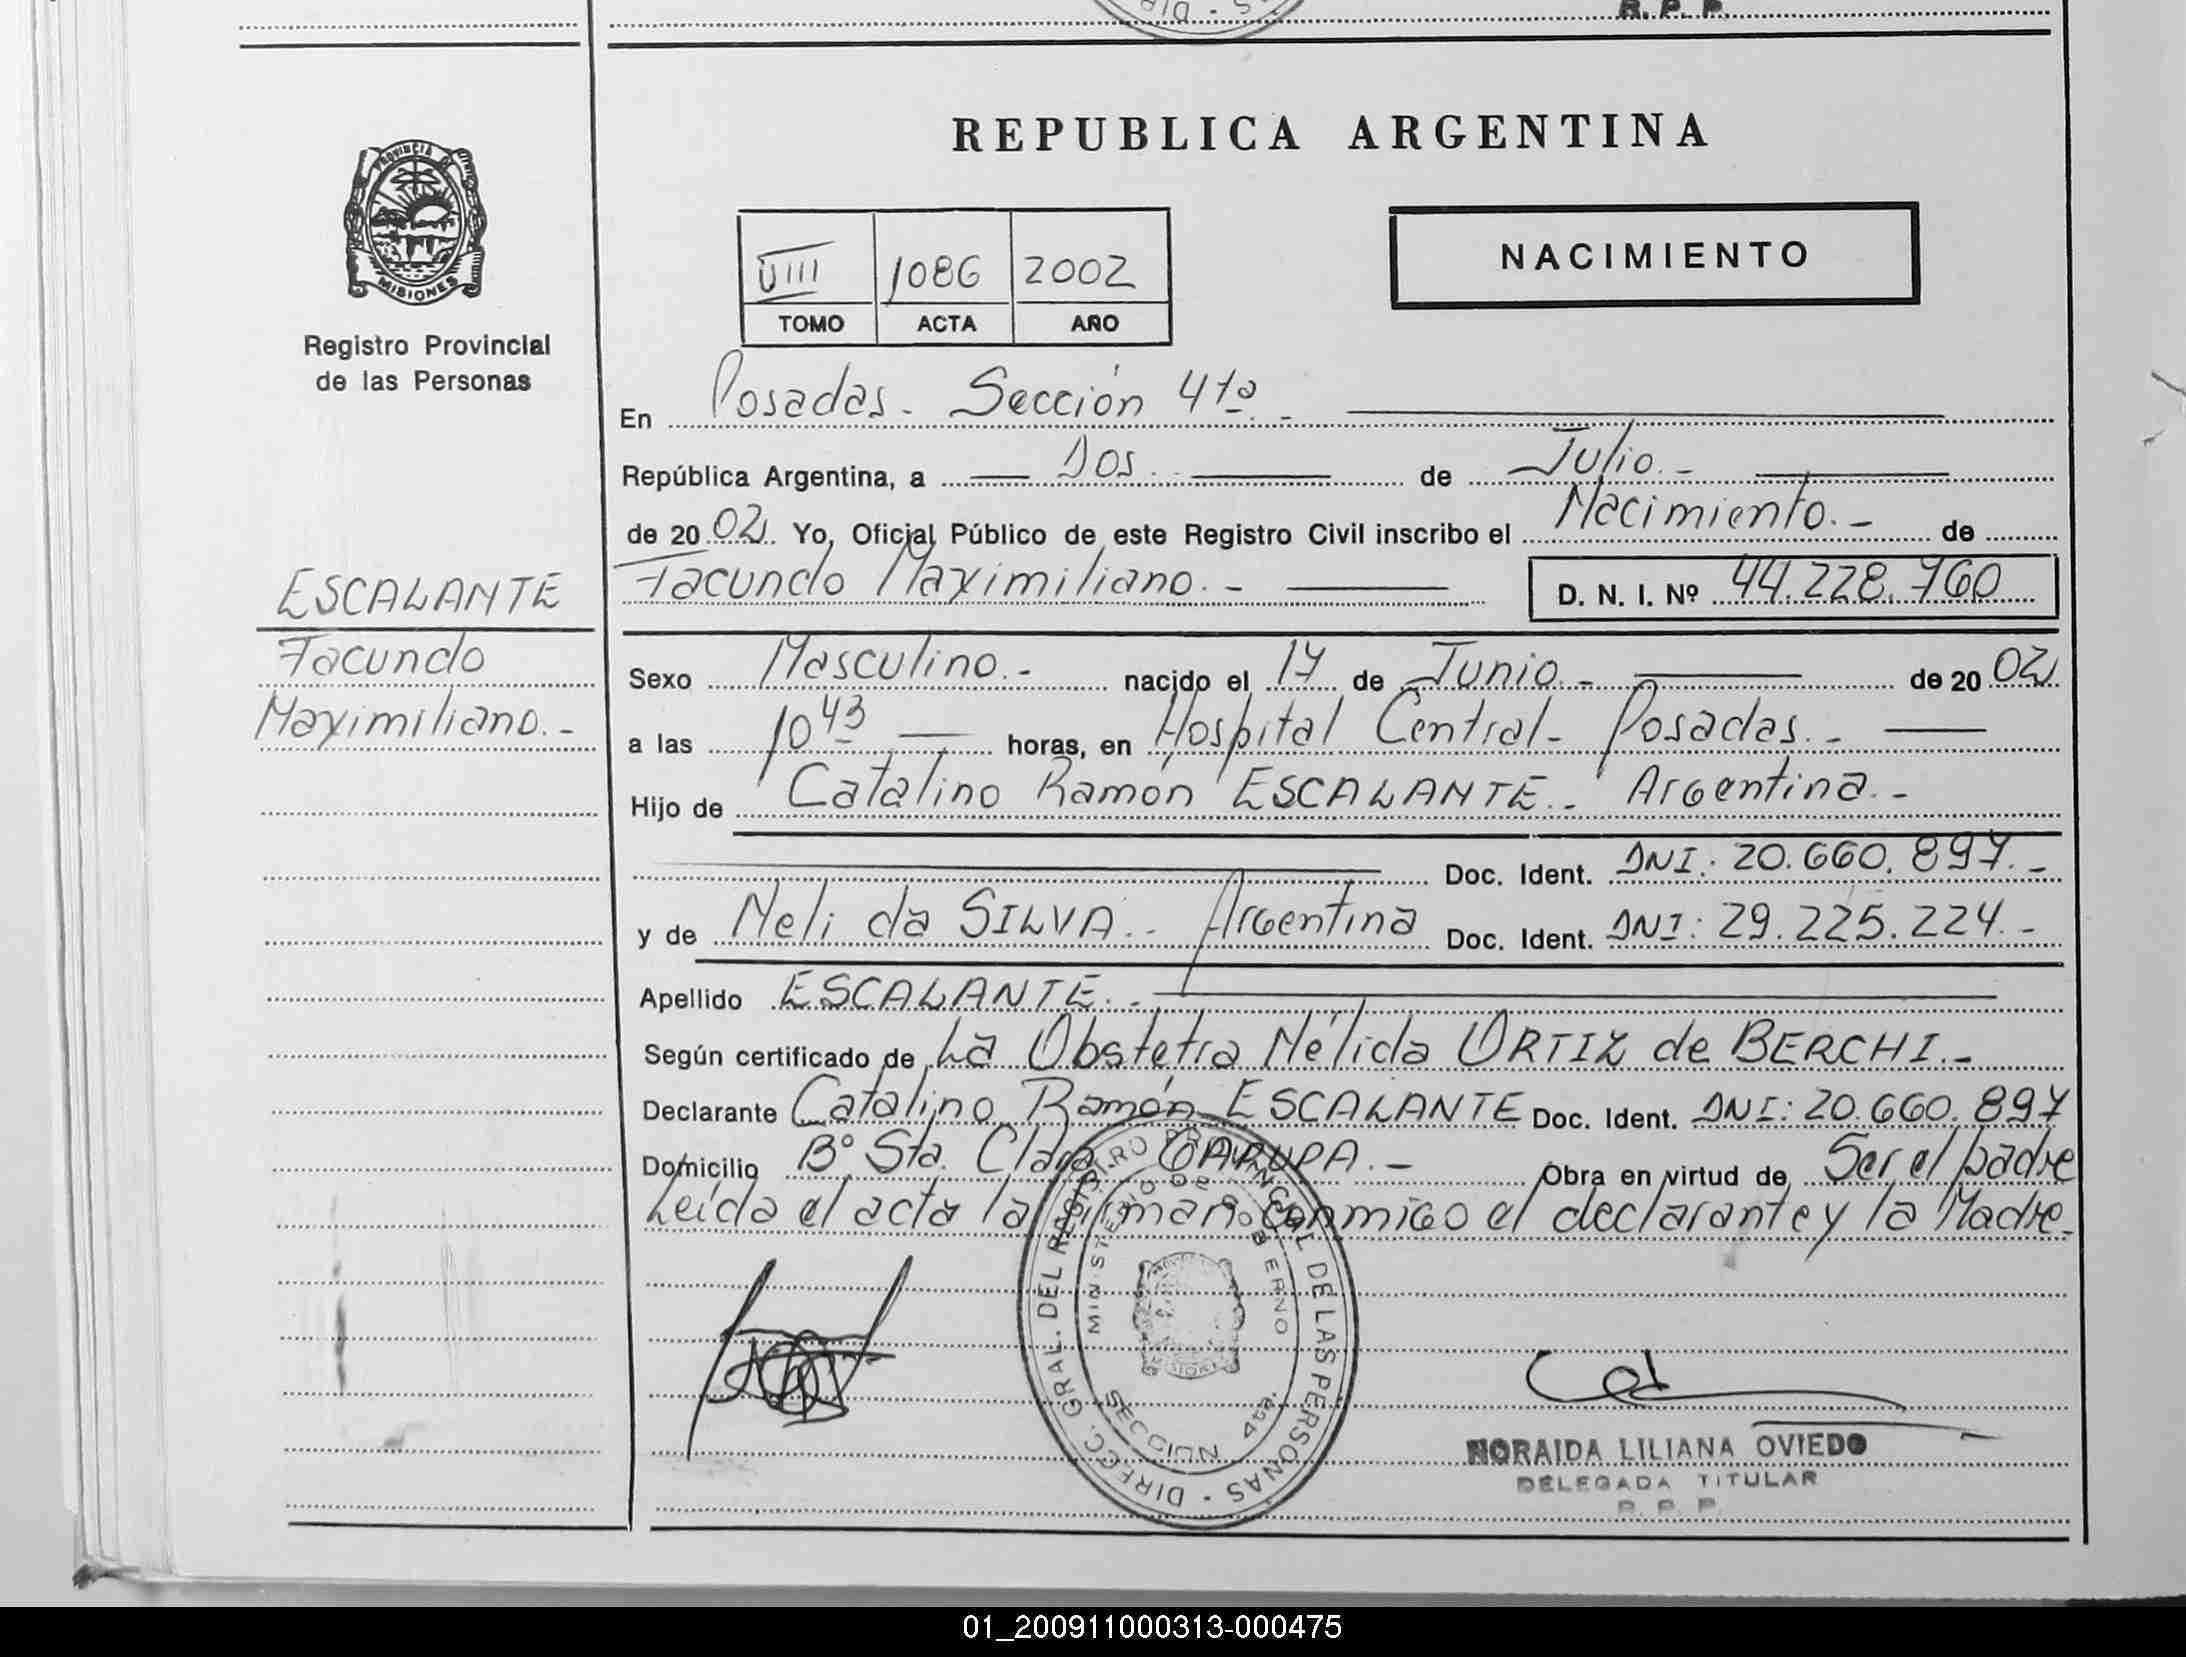 R. P. P.
REPUBLICA ARGENTINA
PROVINCIA DE
MISIONES
Registro Provincial
de las Personas
VIII 1086 2002
TOMO ACTA AÑO
NACIMIENTO
En Posadas. Sección 4ta.-
República Argentina, a Dos. de Julio.-
de 2002. Yo, Oficial Público de este Registro Civil inscribo el Nacimiento.- de
Facundo Maximiliano.- D. N. I. Nº 44.228.760
ESCALANTE
Facundo
Maximiliano.-
Sexo Masculino.- nacido el 17 de Junio.- de 2002
a las 10 43 horas, en Hospital Central- Posadas.-
Hijo de Catalino Ramón ESCALANTE.- Argentina.-
Doc. Ident. DNI: 20.660.897.-
y de Neli da SILVA.- Argentina Doc. Ident. DNI: 29.225.224.-
Apellido ESCALANTE.-
Según certificado de La Obstetra Nélida ORTIZ de BERCHI.-
Declarante Catalino Ramón ESCALANTE Doc. Ident. DNI: 20.660.897
Domicilio Bº Sta. Clara- GARUPA.- Obra en virtud de Ser el padre
Leída el acta la firman conmigo el declarante y la Madre.
DIRECC. GRAL. DEL REGISTRO PROVINCIAL DE LAS PERSONAS
MINISTERIO DE GOBIERNO
SECCION 4ta.
NORAIDA LILIANA OVIEDO
DELEGADA TITULAR
R. P. P.
01_200911000313-000475